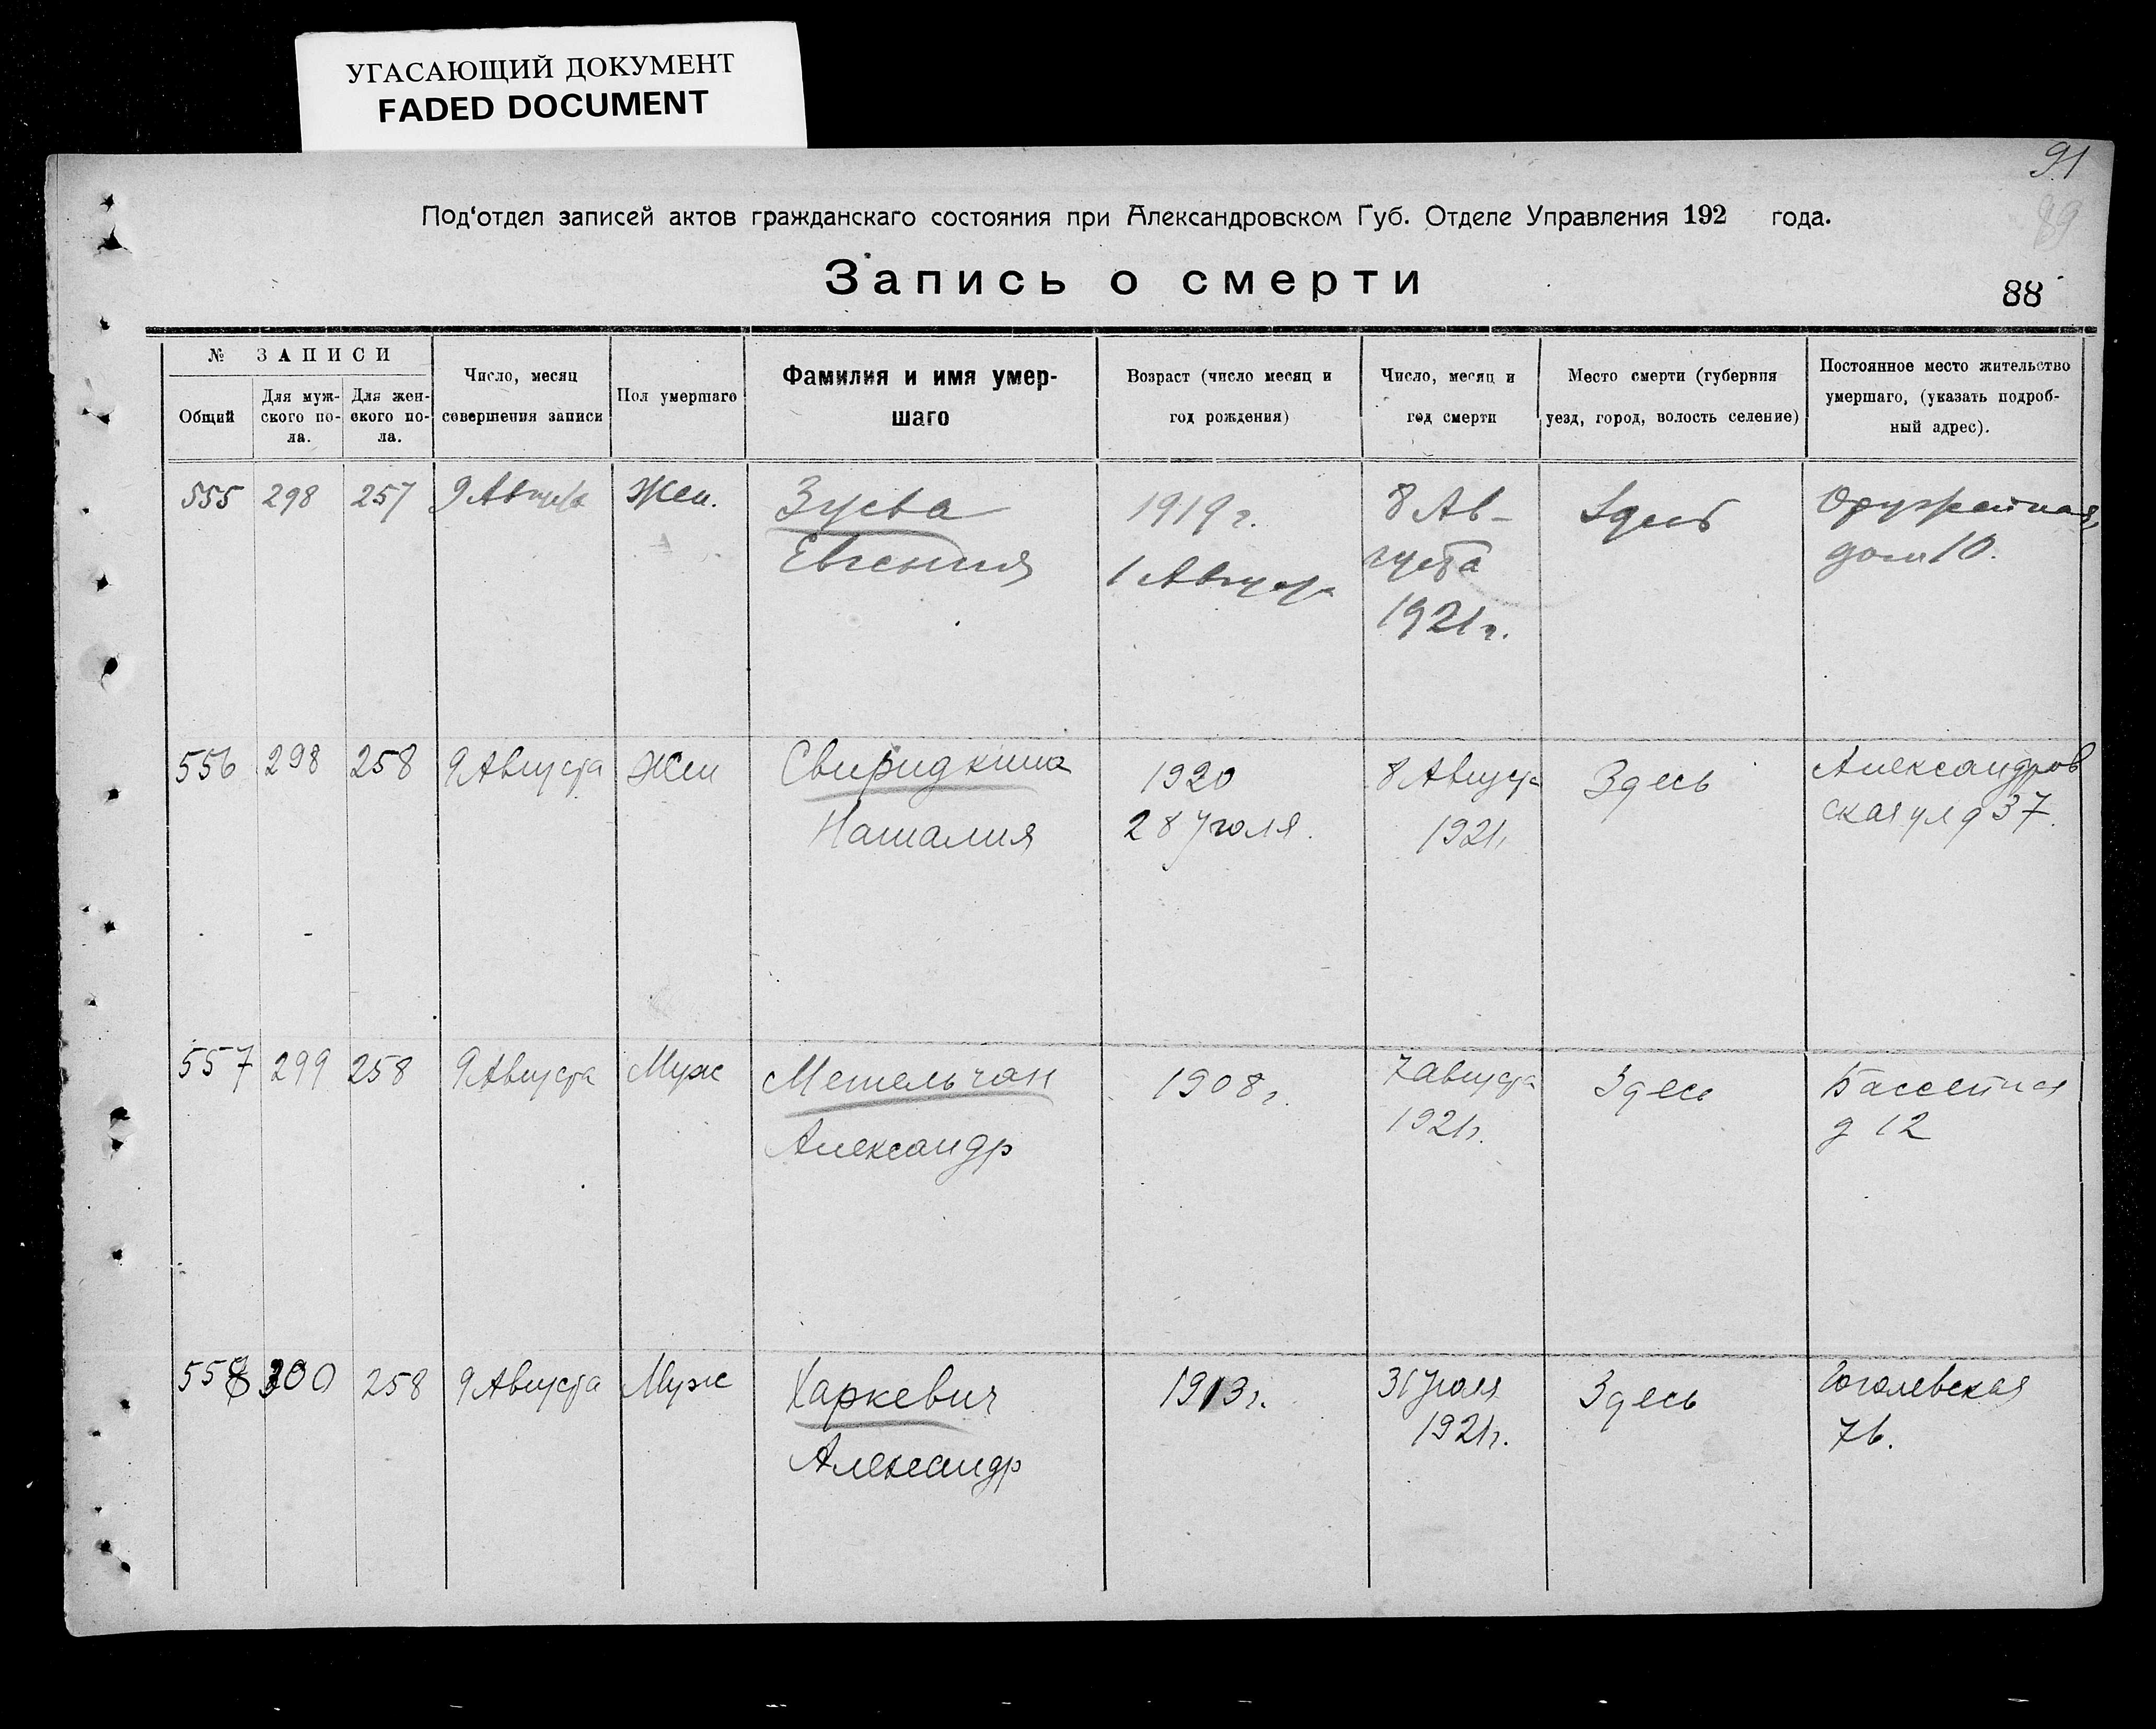 УГАСАЮЩИЙ ДОКУМЕНТ
FADED DOCUMENT
91
89
Под'отдел записей актов гражданскаго состояния при Александровском Губ. Отделе Управления 192 года.
Запись о смерти
88
№ ЗАПИСИ
Общий
Для муж-
ского по-
ла.
Для жен-
ского по-
ла.
Число, месяц
совершения записи
Пол умершаго
Фамилия и имя умер-
шаго
Возраст (число месяц и
год рождения)
Число, месяц и
год смерти
Место смерти (губерния
уезд, город, волость селение)
Постоянное место жительство
умершаго, (указать подроб-
ный адрес).
555 298 257 9 Августа Жен. Зуева 1919 г. 8 Ав- Здесь Оружейная,
Евгения 1 Августа густа дом 10.
1921 г.
556 298 258 9 Августа Жен Свиридкина 1920 8 Августа Здесь Александров
Наталия 28 Июля. 1921г. ская ул д 37.
557 299 258 9 Августа Муж Метельчан 1908 г. 7 августа Здесь Бассейная
Александр 1921г. д 12
558 300 258 9 Августа Муж Харкевич 1913 г. 31 Июля Здесь Гоголевская
Александр 1921г. 76.